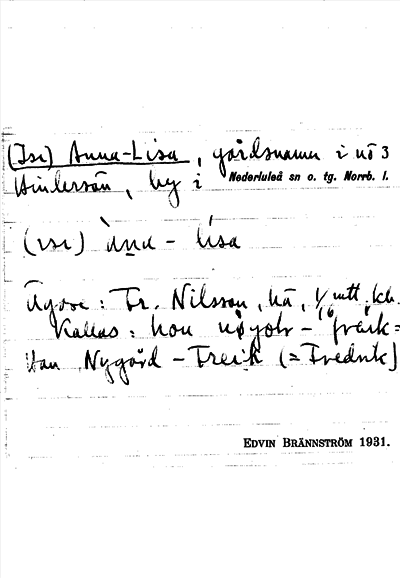 (Isi) Anna-Lisa, gårdsnamn i nö 3
Hindersön, by i Nederluleå sn o. tg. Norrb. l.
(ɩsɩ) ànа - lísa
Ägare: Fr. Nilsson, hä, 1/16 mtl
Kallas: hon
Han Nygård - Freik (= Fredrik)
EDVIN BRÄNNSTRÖM 1931.